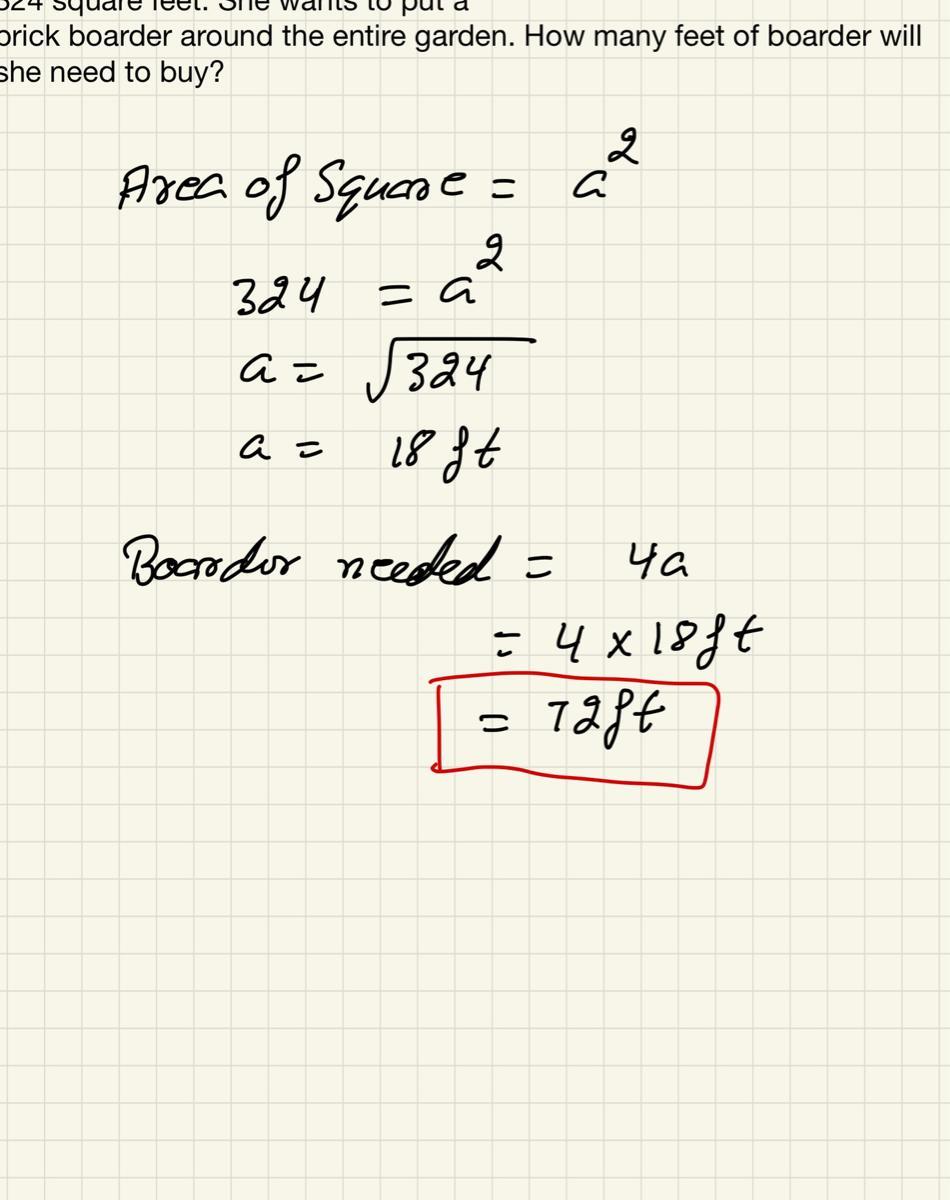 324 square feet. She wants to put a
brick boarder around the entire garden. How many feet of boarder will
she need to buy?
Area of Square = a²
324 = a²
a = √324
a = 18 ft
Boarder needed = 4a
= 4 x 18ft
= 72ft